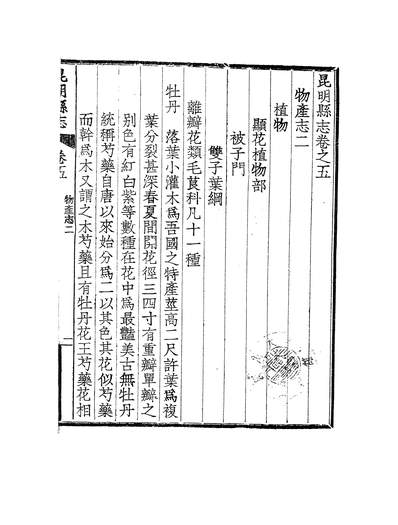 昆明縣志卷之五
物產志二
植物
顯花植物部
被子門
雙子葉綱
離瓣花類毛茛科凡十一種
牡丹　落葉小灌木爲吾國之特產莖高二尺許葉爲複
葉分裂甚深春夏間開花徑三四寸有重瓣單瓣之
别色有紅白紫等數種在花中爲最豔美古無牡丹
統稱芍藥自唐以來始分爲二以其色其花似芍藥
而幹爲木又謂之木芍藥且有牡丹花王芍藥花相
昆明縣志
卷五
物產志二
一